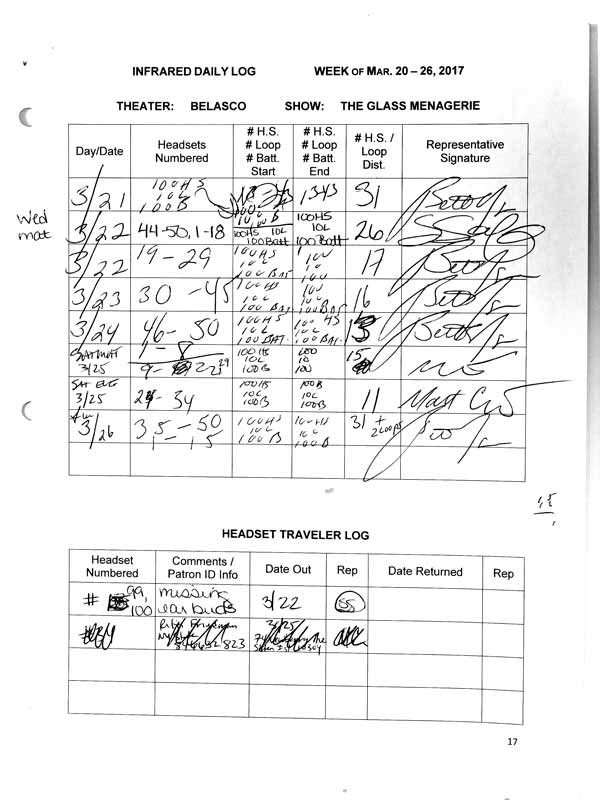 INFRARED DAILY LOG WEEK OF MAR. 20 – 26, 2017
THEATER: BELASCO SHOW: THE GLASS MENAGERIE
Day/Date Headsets Numbered # H.S. # Loop # Batt. Start # H.S. # Loop # Batt. End # H.S. / Loop Dist. Representative Signature
3/21 100HS 10L 100B 31
Wed mat 3/22 44-50, 1-18 100HS 10L 100Batt 100HS 10L 100Batt 26
3/22 19-29 100HS 10L 100BAT 100 10 100 17
3/23 30-45 100HS 10L 100BAT. 100 10L 100BAT. 16
3/24 46-50 100HS 10L 100BAT. 100HS 10L 100BAT.
SAT MATT 3/25 1-8 100HS 10L 100B 100 10 100 15
SAT EVE 3/25 34 100HS 10L 100B 100B 10L 100B 11 Matt
3/26 35-50 1-15 100HS 10L 100B 100HS 10L 100B 31 + 2 Loops
HEADSET TRAVELER LOG
Headset Numbered Comments / Patron ID Info Date Out Rep Date Returned Rep
# 99, 100 missing ear buds 3/22 SS
3/25
17